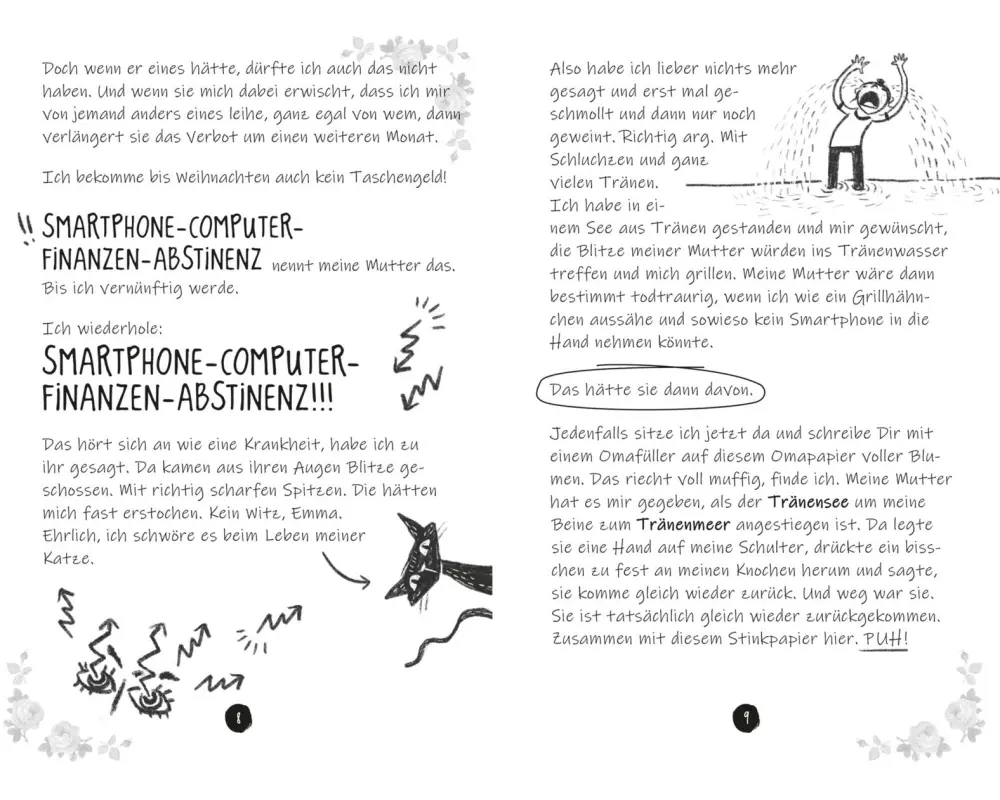 Doch wenn er eines hätte, dürfte ich auch das nicht
haben. Und wenn sie mich dabei erwischt, dass ich mir
von jemand anders eines leihe, ganz egal von wem, dann
verlängert sie das Verbot um einen weiteren Monat.
Ich bekomme bis Weihnachten auch kein Taschengeld!
!! SMARTPHONE-COMPUTER-
FINANZEN-ABSTINENZ nennt meine Mutter das.
Bis ich vernünftig werde.
Ich wiederhole:
SMARTPHONE-COMPUTER-
FINANZEN-ABSTINENZ!!!
Das hört sich an wie eine Krankheit, habe ich zu
ihr gesagt. Da kamen aus ihren Augen Blitze ge-
schossen. Mit richtig scharfen Spitzen. Die hätten
mich fast erstochen. Kein Witz, Emma.
Ehrlich, ich schwöre es beim Leben meiner
Katze.
8
Also habe ich lieber nichts mehr
gesagt und erst mal ge-
schmollt und dann nur noch
geweint. Richtig arg. Mit
Schluchzen und ganz
vielen Tränen.
Ich habe in ei-
nem See aus Tränen gestanden und mir gewünscht,
die Blitze meiner Mutter würden ins Tränenwasser
treffen und mich grillen. Meine Mutter wäre dann
bestimmt todtraurig, wenn ich wie ein Grillhähn-
chen aussähe und sowieso kein Smartphone in die
Hand nehmen könnte.
Das hätte sie dann davon.
Jedenfalls sitze ich jetzt da und schreibe Dir mit
einem Omafüller auf diesem Omapapier voller Blu-
men. Das riecht voll muffig, finde ich. Meine Mutter
hat es mir gegeben, als der Tränensee um meine
Beine zum Tränenmeer angestiegen ist. Da legte
sie eine Hand auf meine Schulter, drückte ein biss-
chen zu fest an meinen Knochen herum und sagte,
sie komme gleich wieder zurück. Und weg war sie.
Sie ist tatsächlich gleich wieder zurückgekommen.
Zusammen mit diesem Stinkpapier hier. PUH!
9